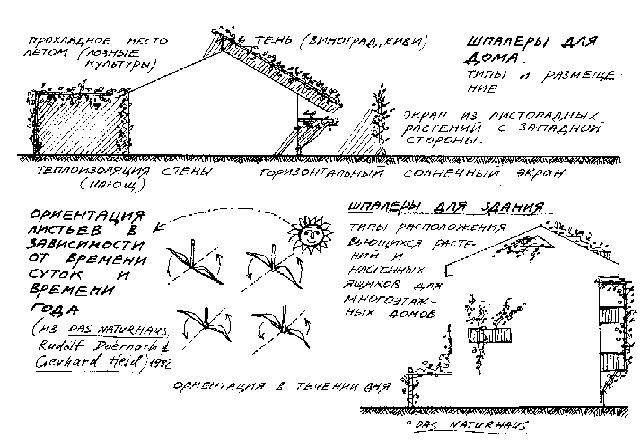 ПРОХЛАДНОЕ МЕСТО
ЛЕТОМ (ЛОЗНЫЕ
КУЛЬТУРЫ)
ТЕНЬ (ВИНОГРАД, КИВИ)
ШПАЛЕРЫ ДЛЯ
ДОМА.
ТИПЫ И РАЗМЕЩЕ-
НИЕ
ЭКРАН ИЗ ЛИСТОПАДНЫХ
РАСТЕНИЙ С ЗАПАДНОЙ
СТОРОНЫ.
ТЕПЛОИЗОЛЯЦИЯ СТЕНЫ
(ПЛЮЩ)
ГОРИЗОНТАЛЬНЫЙ СОЛНЕЧНЫЙ ЭКРАН
ОРИЕНТАЦИЯ
ЛИСТЬЕВ В
ЗАВИСИМОСТИ
ОТ ВРЕМЕНИ
СУТОК И
ВРЕМЕНИ
ГОДА
(ИЗ DAS NATURHAUS,
Rudolf Doernach &
Gerhard Heid) 1982
ОРИЕНТАЦИЯ В ТЕЧЕНИИ ДНЯ
ШПАЛЕРЫ ДЛЯ ЗДАНИЯ
ТИПЫ РАСПОЛОЖЕНИЯ
ВЬЮЩИХСЯ РАСТЕ-
НИЙ И
НАСТЕННЫХ
ЯЩИКОВ ДЛЯ
МНОГОЭТАЖ-
НЫХ ДОМОВ
"DAS NATURHAUS